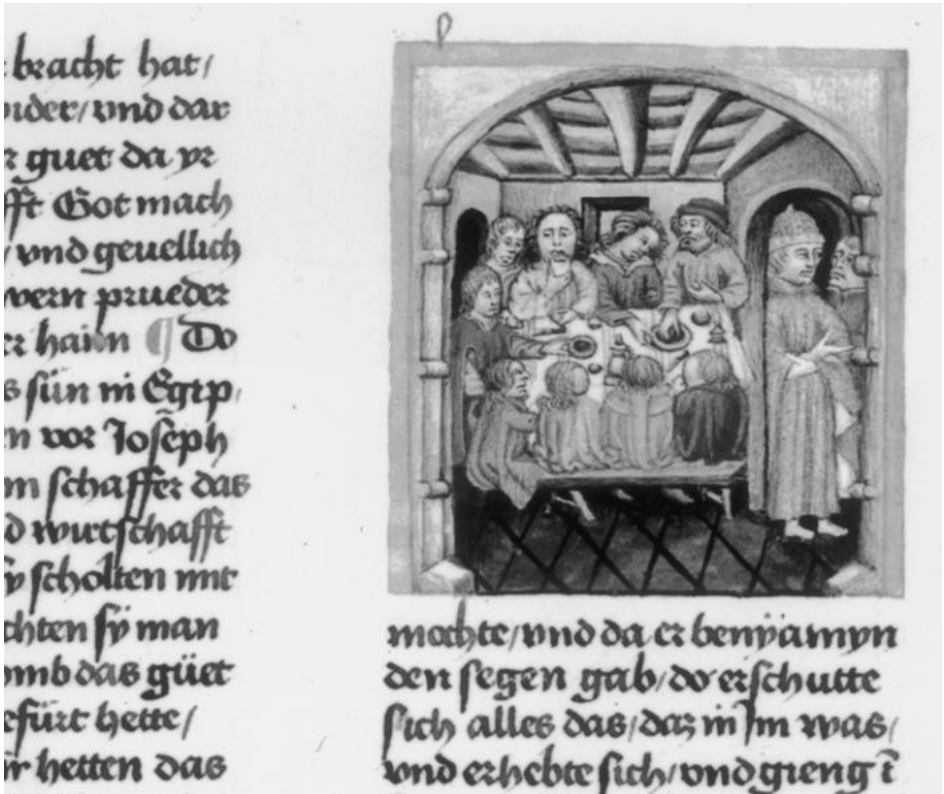 bracht hat/
vnd dar
guet da yr
Got mach
/ vnd geuellich
prueder
haim ¶ Do
sün in Egip/
vor Joseph
schaffer das
wirtschafft
scholten mit
sÿ man
das güet
hette/
hetten das
mochte/ vnd da er benÿamyn
den segen gab/ do erschutte
sich alles das/ daz in Im was/
vnd erhebte sich/ vnd gieng ī